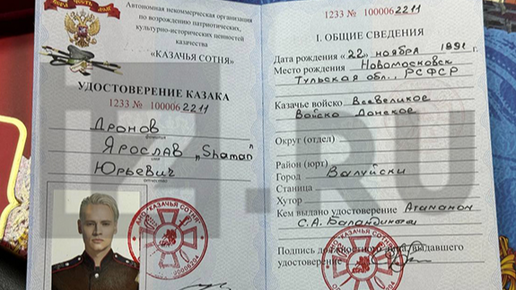 Автономная некоммерческая организация
по возрождению патриотических,
культурно-исторических ценностей
казачества
«КАЗАЧЬЯ СОТНЯ»
УДОСТОВЕРЕНИЕ КАЗАКА
1233 № 1000062211
Дронов
Ярослав „Shaman"
Юрьевич
1233 № 1000062211
I. ОБЩИЕ СВЕДЕНИЯ
Дата рождения «22 ноября 1991
Место рождения Новомосковск
Тульская обл., РСФСР
Казачье войско Всевеликое
Войско Донское
Округ (отдел)
Район (юрт)
Город Валуйски
Станица
Хутор
Кем выдано удостоверение Атаманом
С.А. Баландиным
Подпись должностного лица, выдавшего
удостоверение
КАЗАЧЬЯ СОТНЯ
.RU